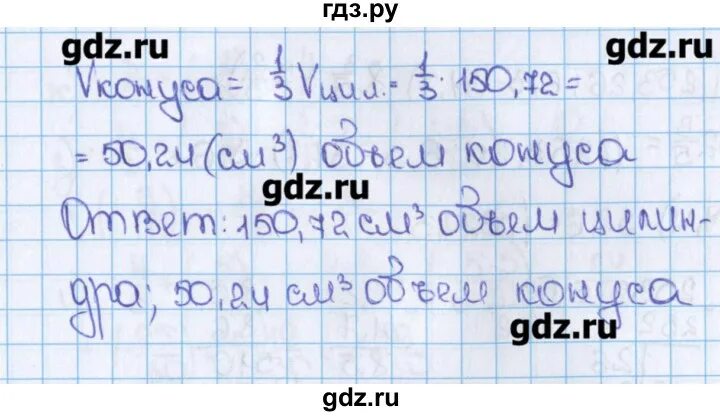 гдз.ру
gdz.ru gdz.ru
Vконуса = 1/3 Vцил. = 1/3 · 150,72 =
= 50,24 (см³) объем конуса
gdz.ru
Ответ: 150,72 см³ объем цилин-
дра; 50,24 см³ объем конуса
gdz.ru
gdz.ru